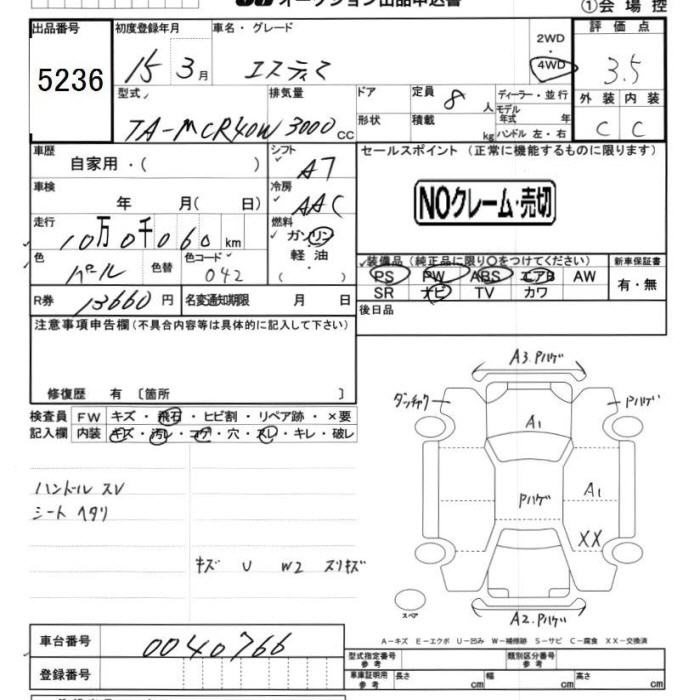 オークション出品申込書
①会場控
出品番号 初度登録年月 車名・グレード 2WD 4WD 評価点
5236 15 3月 エスティマ 3.5
型式 排気量 ドア 定員 8人 ディーラー・並行 外装 内装
TA-MCR40W 3000cc 形状 積載 kg モデル年式 年 ハンドル 左・右 C C
車歴 自家用・( ) シフト AT セールスポイント (正常に機能するものに限ります)
車検 年 月( 日) 冷房 AAC NOクレーム・売切
走行 10万0千060km 燃料 ガソリン・軽油
色 パール 色替 色コード 042 装備品 (純正品に限り○をつけてください) 新車保証書
PS PW ABS エアB AW 有・無
SR ナビ TV カワ
R券 13660円 名変通知期限 月 日 後日品
注意事項申告欄(不具合内容等は具体的に記入して下さい)
修復歴 有〔箇所 〕
検査員 FW キズ・飛石・ヒビ割・リペア跡・×要
記入欄 内装 キズ・汚レ・コゲ・穴・スレ・キレ・破レ
ハンドル スレ
シート ヘタリ
キズ U W2 スリキズ
A3.Pハゲ
ダッチャク Pハゲ
A1
Pハゲ A1
XX
スペア
A2.Pハゲ
A-キズ E-エクボ U-凹み W-補修跡 S-サビ C-腐食 XX-交換済
車台番号 0040766
登録番号
型式指定番号 参考 類別区分番号 参考
車庫証明用 参考 長さ cm 幅 cm 高さ cm